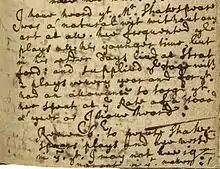 I have heard yt Mr. Shakespeare
was a natural wit without any
art at all. hee frequented ye
plays all his younger time, but
in his elder days lived at Stratford
and supplied ye stage with
2 plays every year & for yt
had an allowance so large yt
hee spent at ye Rate of 1000l
a year as I have heard.
Remember to peruse Shakespears
plays & bee versed
in ym yt I may not bee ignorant
in yt matter.